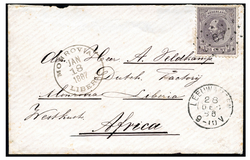 MONROVIA
JAN
LIBERIA
Den Heer A. Veldkamp
Dutch Factory
Monrovia Liberia
Westkust
Africa
LEEUWARDEN
26
DEC